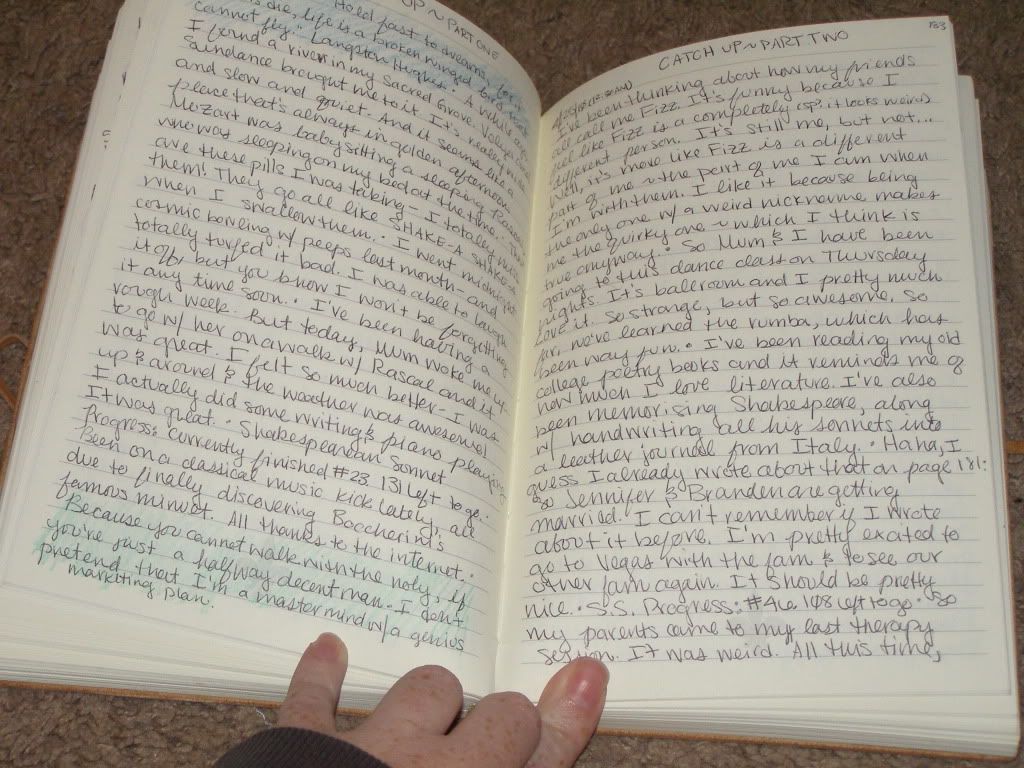 UP ~ PART ONE
Hold fast to dreams, for if
die, life is a broken winged bird that
cannot fly. Langston Hughes. · A while ago
I found a river in my sacred Grove. Voallyn
Raindance brought me to it. It's really wide
and slow and quiet. And it seems like a
place that's always in golden afternoon. ·
Mozart was babysitting a sleeping Rascal
who was sleeping on my bed at the time. · There
are these pills I was taking - I totally hated
them! They go all like SHAKE-A SHAKE
when I swallow them. · I went midnight
cosmic bowling w/ peeps last month - and I
totally turfed it bad. I was able to laugh
it off but you know I won't be forgetting
it any time soon. · I've been having a
rough week. But today, Mum woke me up
to go w/ her on a walk w/ Rascal and it
was great. I felt so much better - I was
up & around & the weather was awesome!
I actually did some writing & piano playing.
It was great. · Shakespearean Sonnet
Progress: Currently finished #23 131 left to go. ·
Been on a classical music kick lately, all
due to finally discovering Boccherini's
famous minuet. All thanks to the internet. ·
Because you cannot walk with the holy, if
you're just a halfway decent man · I don't
pretend that I'm a mastermind w/ a genius
marketing plan.
183
CATCH UP ~ PART TWO
I've been thinking about how my friends
all call me Fizz. It's funny because I
feel like Fizz is a completely (sp? it looks weird)
different person. It's still me, but not...
well, it's more like Fizz is a different
part of me ~ the part of me I am when
I'm with them. I like it because being
the only one w/ a weird nickname makes
me the quirky one ~ which I think is
true anyway. · So Mum & I have been
going to this dance class on Thursday
nights. It's ballroom and I pretty much
love it. So strange, but so awesome. So
far, we've learned the rumba, which has
been way fun. · I've been reading my old
college poetry books and it reminds me of
how much I love literature. I've also
been memorising Shakespeare, along
w/ handwriting all his sonnets into
a leather journal from Italy. · Haha, I
guess I already wrote about that on page 181. ·
So Jennifer & Branden are getting
married. I can't remember if I wrote
about it before. I'm pretty excited to
go to Vegas with the fam & to see our
other fam again. It should be pretty
nice. · S.S. Progress: #46 108 left to go · So
my parents came to my last therapy
session. It was weird. All this time,